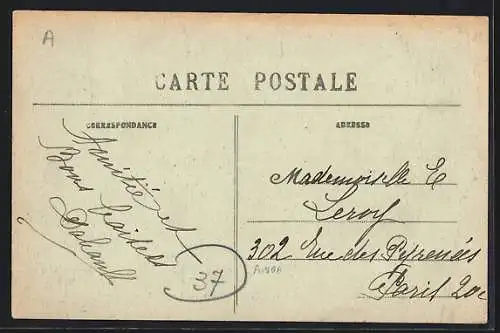 A
CARTE POSTALE
CORRESPONDANCE
ADRESSE
Amitié et
Bons baisers
Mademoiselle E
Leroy
302 Rue des Pyrenées
Paris 20e
37